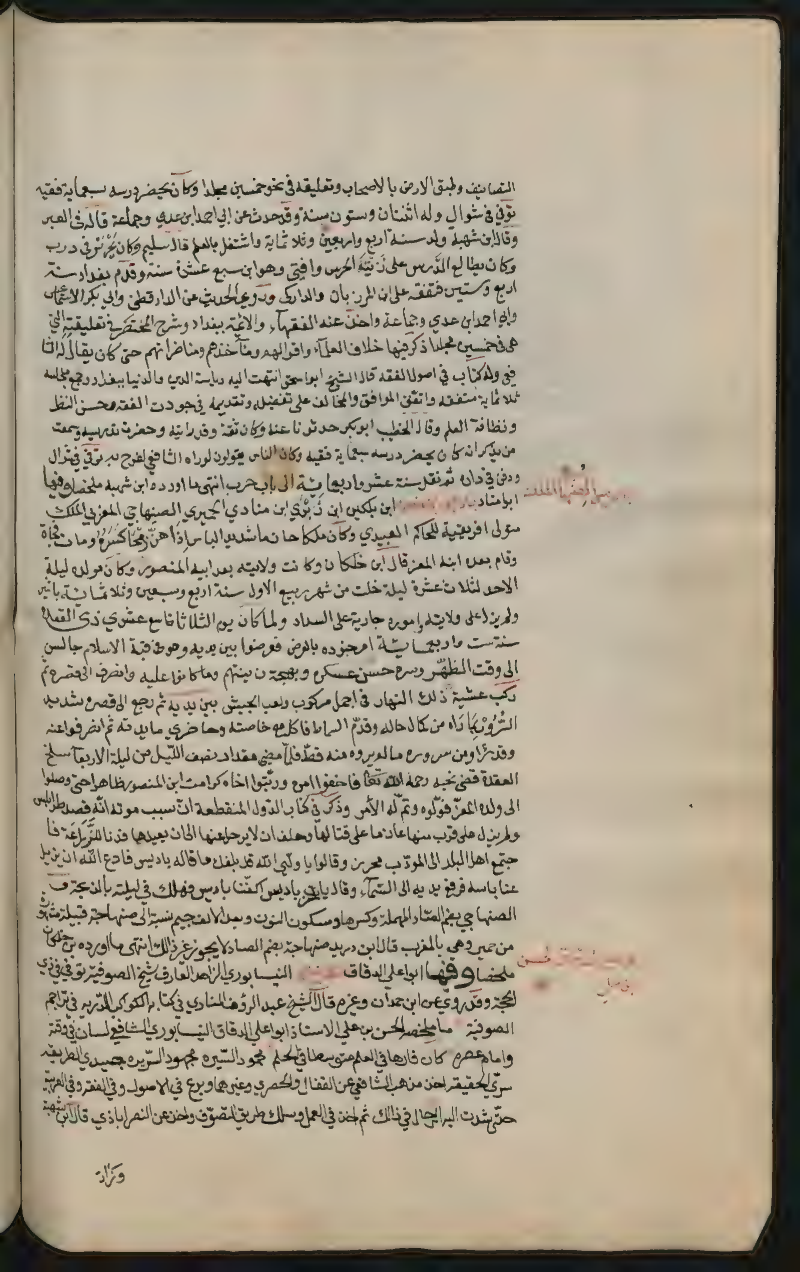 التصانيف وطبق الارض بالاصحاب وتعليقه في نحو خمسين مجلدا وكان يحضر درسه سبعماية فقيه
توفي في شوال وله اثنتان وستون سنة وقد حدث عن ابي احمد ابن عدي وجماعة قاله في العبر
وقال ابن شهبة ولد سنة اربع واربعين وثلاثماية واشتغل بالعلم قال سليم وكان يحرس في درب
وكان يطالع الدرس على زيت الحرس وافتى وهو ابن سبع عشرة سنة وقدم بغداد سنة
اربع وستين فتفقه على ابن المرزبان والداركي وروى الحديث عن الدارقطني وابي بكر الاسماعيلي
وابي احمد ابن عدي وجماعة واخذ عنه الفقهاء والائمة ببغداد وشرح المختصر في تعليقته التي
هي في خمسين مجلدا ذكر فيها خلاف العلماء واقوالهم ومآخذهم ومناظراتهم حتى كان يقال له الشا
فعي وله كتاب في اصول الفقه قال الشيخ ابو اسحق انتهت اليه رياسة الدين والدنيا ببغداد وجمع مجلسه
ثلاثماية متفقه واتفق الموافق والمخالف على تفضيله وتقديمه في جودت الفقه وحسن النظر
ونظافة العلم وقال الخطيب ابو بكر حدثونا عنه وكان ثقة وقد رايته وحضرت تدريسه وسمعت
من يذكر انه كان يحضر درسه سبعماية فقيه وكان الناس يقولون لو راه الشافعي لفرح به توفي في شوال
ودفن في داره ثم نقل سنة عشر واربعماية الى باب حرب انتهى ما اورده ابن شهبة ملخصا وفيها
ابو مناد ابن بلكين ابن زيري ابن منادي الحميري الصنهاجي المعز بن الملك
متولى افريقية للحاكم العبيدي وكان ملكا حازما شديد الباس اذا هز رمحا كسره ومات فجاة
وقام بعده ابنه المعز قال ابن خلكان وكانت ولايته بعد ابيه المنصور وكان مولده ليلة
الاحد لثلاث عشرة ليلة خلت من شهر ربيع الاول سنة اربع وسبعين وثلاثماية باشير
ولم يزل على ولايته واموره جارية على السداد ولما كان يوم الثلاثا تاسع عشري ذي القعدة
سنة ست واربعماية امر جنوده بالعرض فعرضوا بين يديه وهو في قبة الاسلام جالس
الى وقت الظهر وسره حسن عسكره وبهجة زينتهم وما كانوا عليه وانصرف الى قصره ثم
ركب عشية ذلك النهار في اجمل مركوب ولعب الجيش بين يديه ثم رجع الى قصره شديد
السرور بما راه من كمال حاله وقدم السماط فاكل مع خاصته وحاضري مايدته ثم انصرفوا عنه
وقد راوا من سروره ما لم يروه منه قط فلما مضى مقدار نصف الليل من ليلة الاربعا سلخ
القعدة قضى نحبه رحمه الله تعالى فاخفوا امره ورتبوا اخاه كرامت ابن المنصور ظاهرا حتى وصلوا
الى ولده المعز فولوه وتم له الامر وذكر في كتاب الدول المنقطعة ان سبب موته انه قصد طرابلس
ولم يزل على قرب منها عازما على قتالها وحلف ان لا يرحل عنها الى ان يعيدها فدنا للزراعة فا
جتمع اهل البلد الى المودب محرز وقالوا يا ولي الله قد بلغك ما قاله باديس فادع الله ان يزيل
عنا باسه فرفع يديه الى السماء وقال يا رب باديس اكفنا باديس فهلك في ليلته بالذبحة و
الصنهاجي بضم الصاد المهملة وكسرها وسكون النون وبعد الالف جيم نسبة الى صنهاجة قبيلة مشهورة
من حمير وهي بالمغرب قال ابن دريد صنهاجة بضم الصاد لا يجوز غير ذلك انتهى ما اورده بن خلكان
ملخصا وفيها ابو علي الدقاق النيسابوري الزاهد العارف شيخ الصوفية توفي في ذي
الحجة وقد روي عن ابن حمدان وغيره قال الشيخ عبد الرؤف المناوي في كتابه الكوكب الدرية في تراجم
الصوفية ما ملخصه الحسن بن علي الاستاذ ابو علي الدقاق النيسابوري الشافعي لسان وقته
وامام عصره كان فارها في العلم متوسطا في الحلم محمود السيره مجهود السريره جنيدي الطريقة
سري الحقيقة اخذ مذهب الشافعي عن القفال والحصري وغيرهما وبرع في الاصول وفي الفقه وفي العربية
حتى شدت اليه الرحال في ذلك ثم اخذ في العمل وسلك طريق التصوف واخذ عن النصراباذي قال ابن شهبة
وزاد